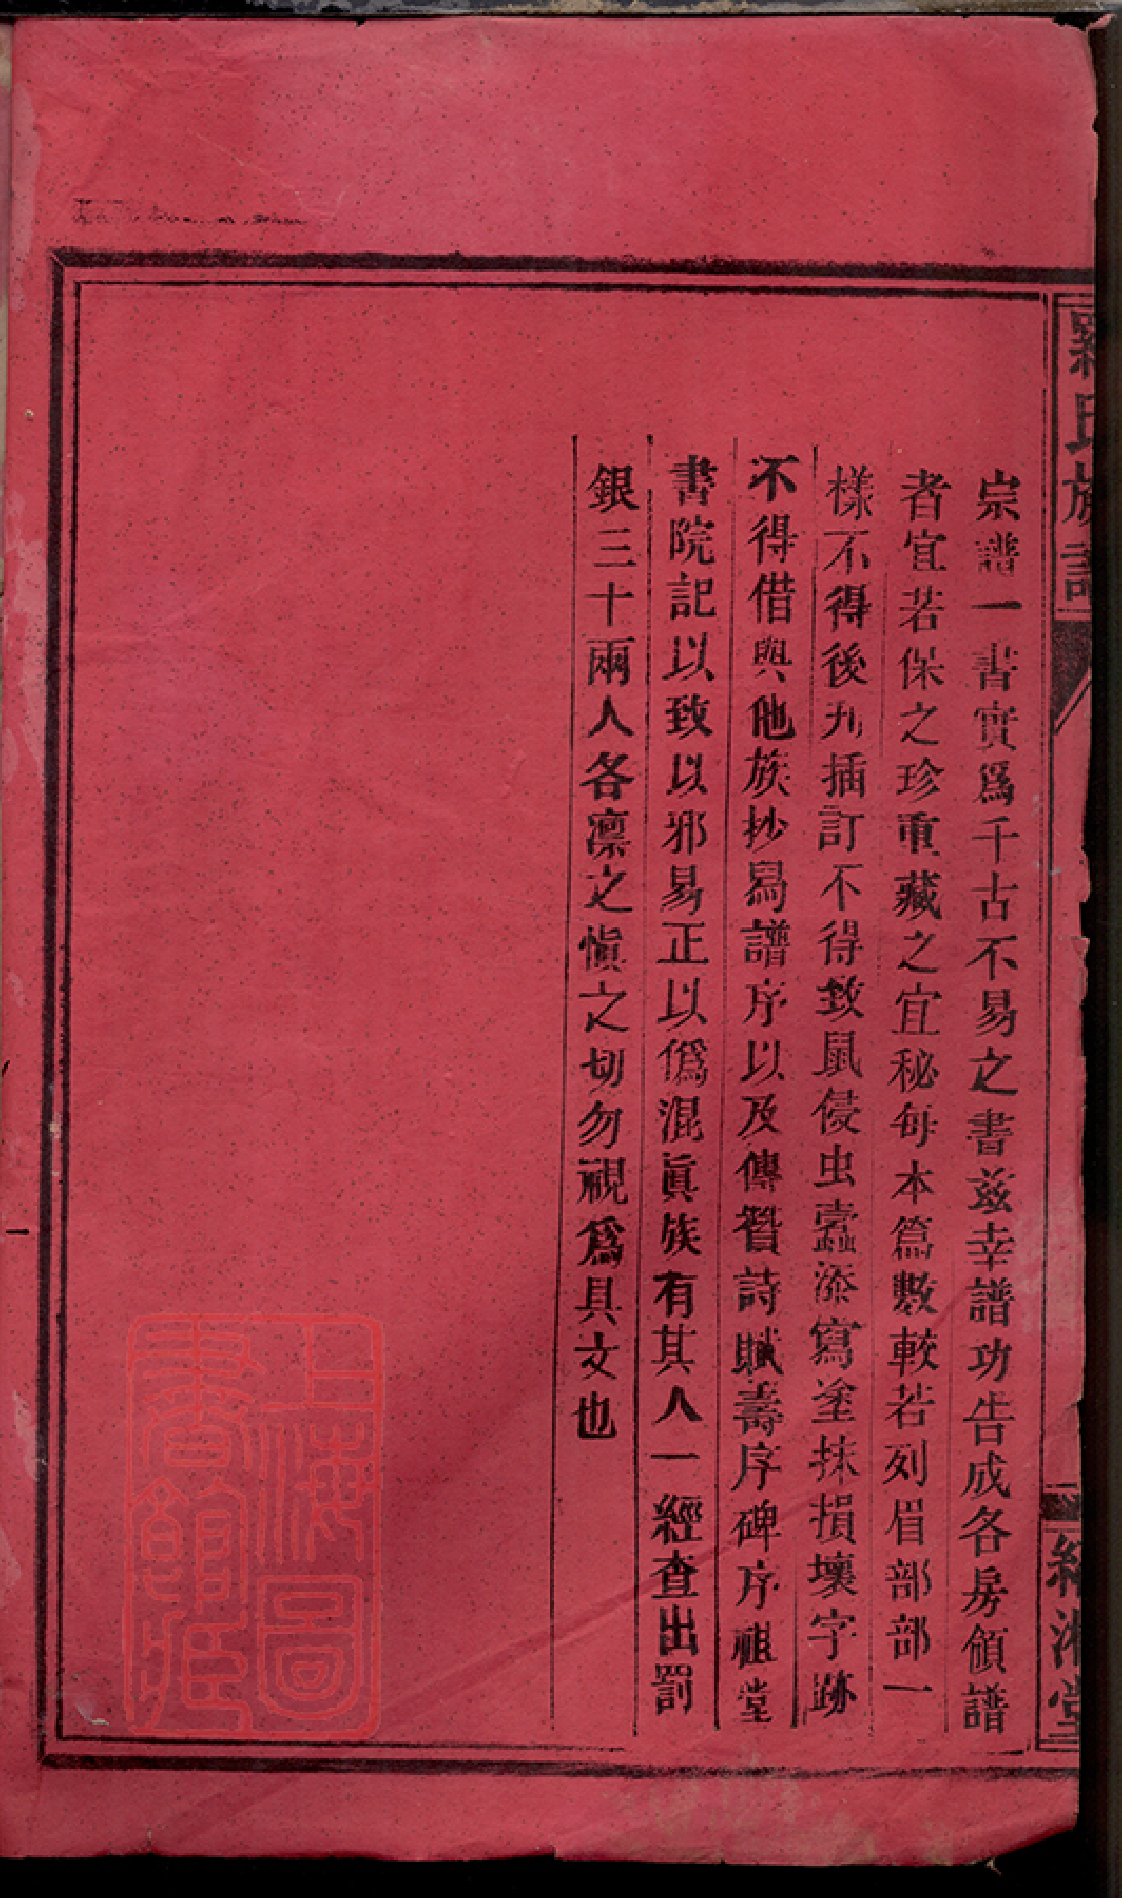 羅氏族譜
經湘堂
宗譜一書實爲千古不易之書茲幸譜功告成各房領譜
者宜若保之珍重藏之宜秘每本篇數較若列眉部部一
樣不得後九插訂不得致鼠侵虫蠹添寫塗抹損壞字跡
不得借與他族抄寫譜序以及傳贊詩賦壽序碑序祖堂
書院記以致以邪易正以僞混眞族有其人一經查出罰
銀三十兩人各凛之愼之切勿視爲具文也
上海圖
書館藏